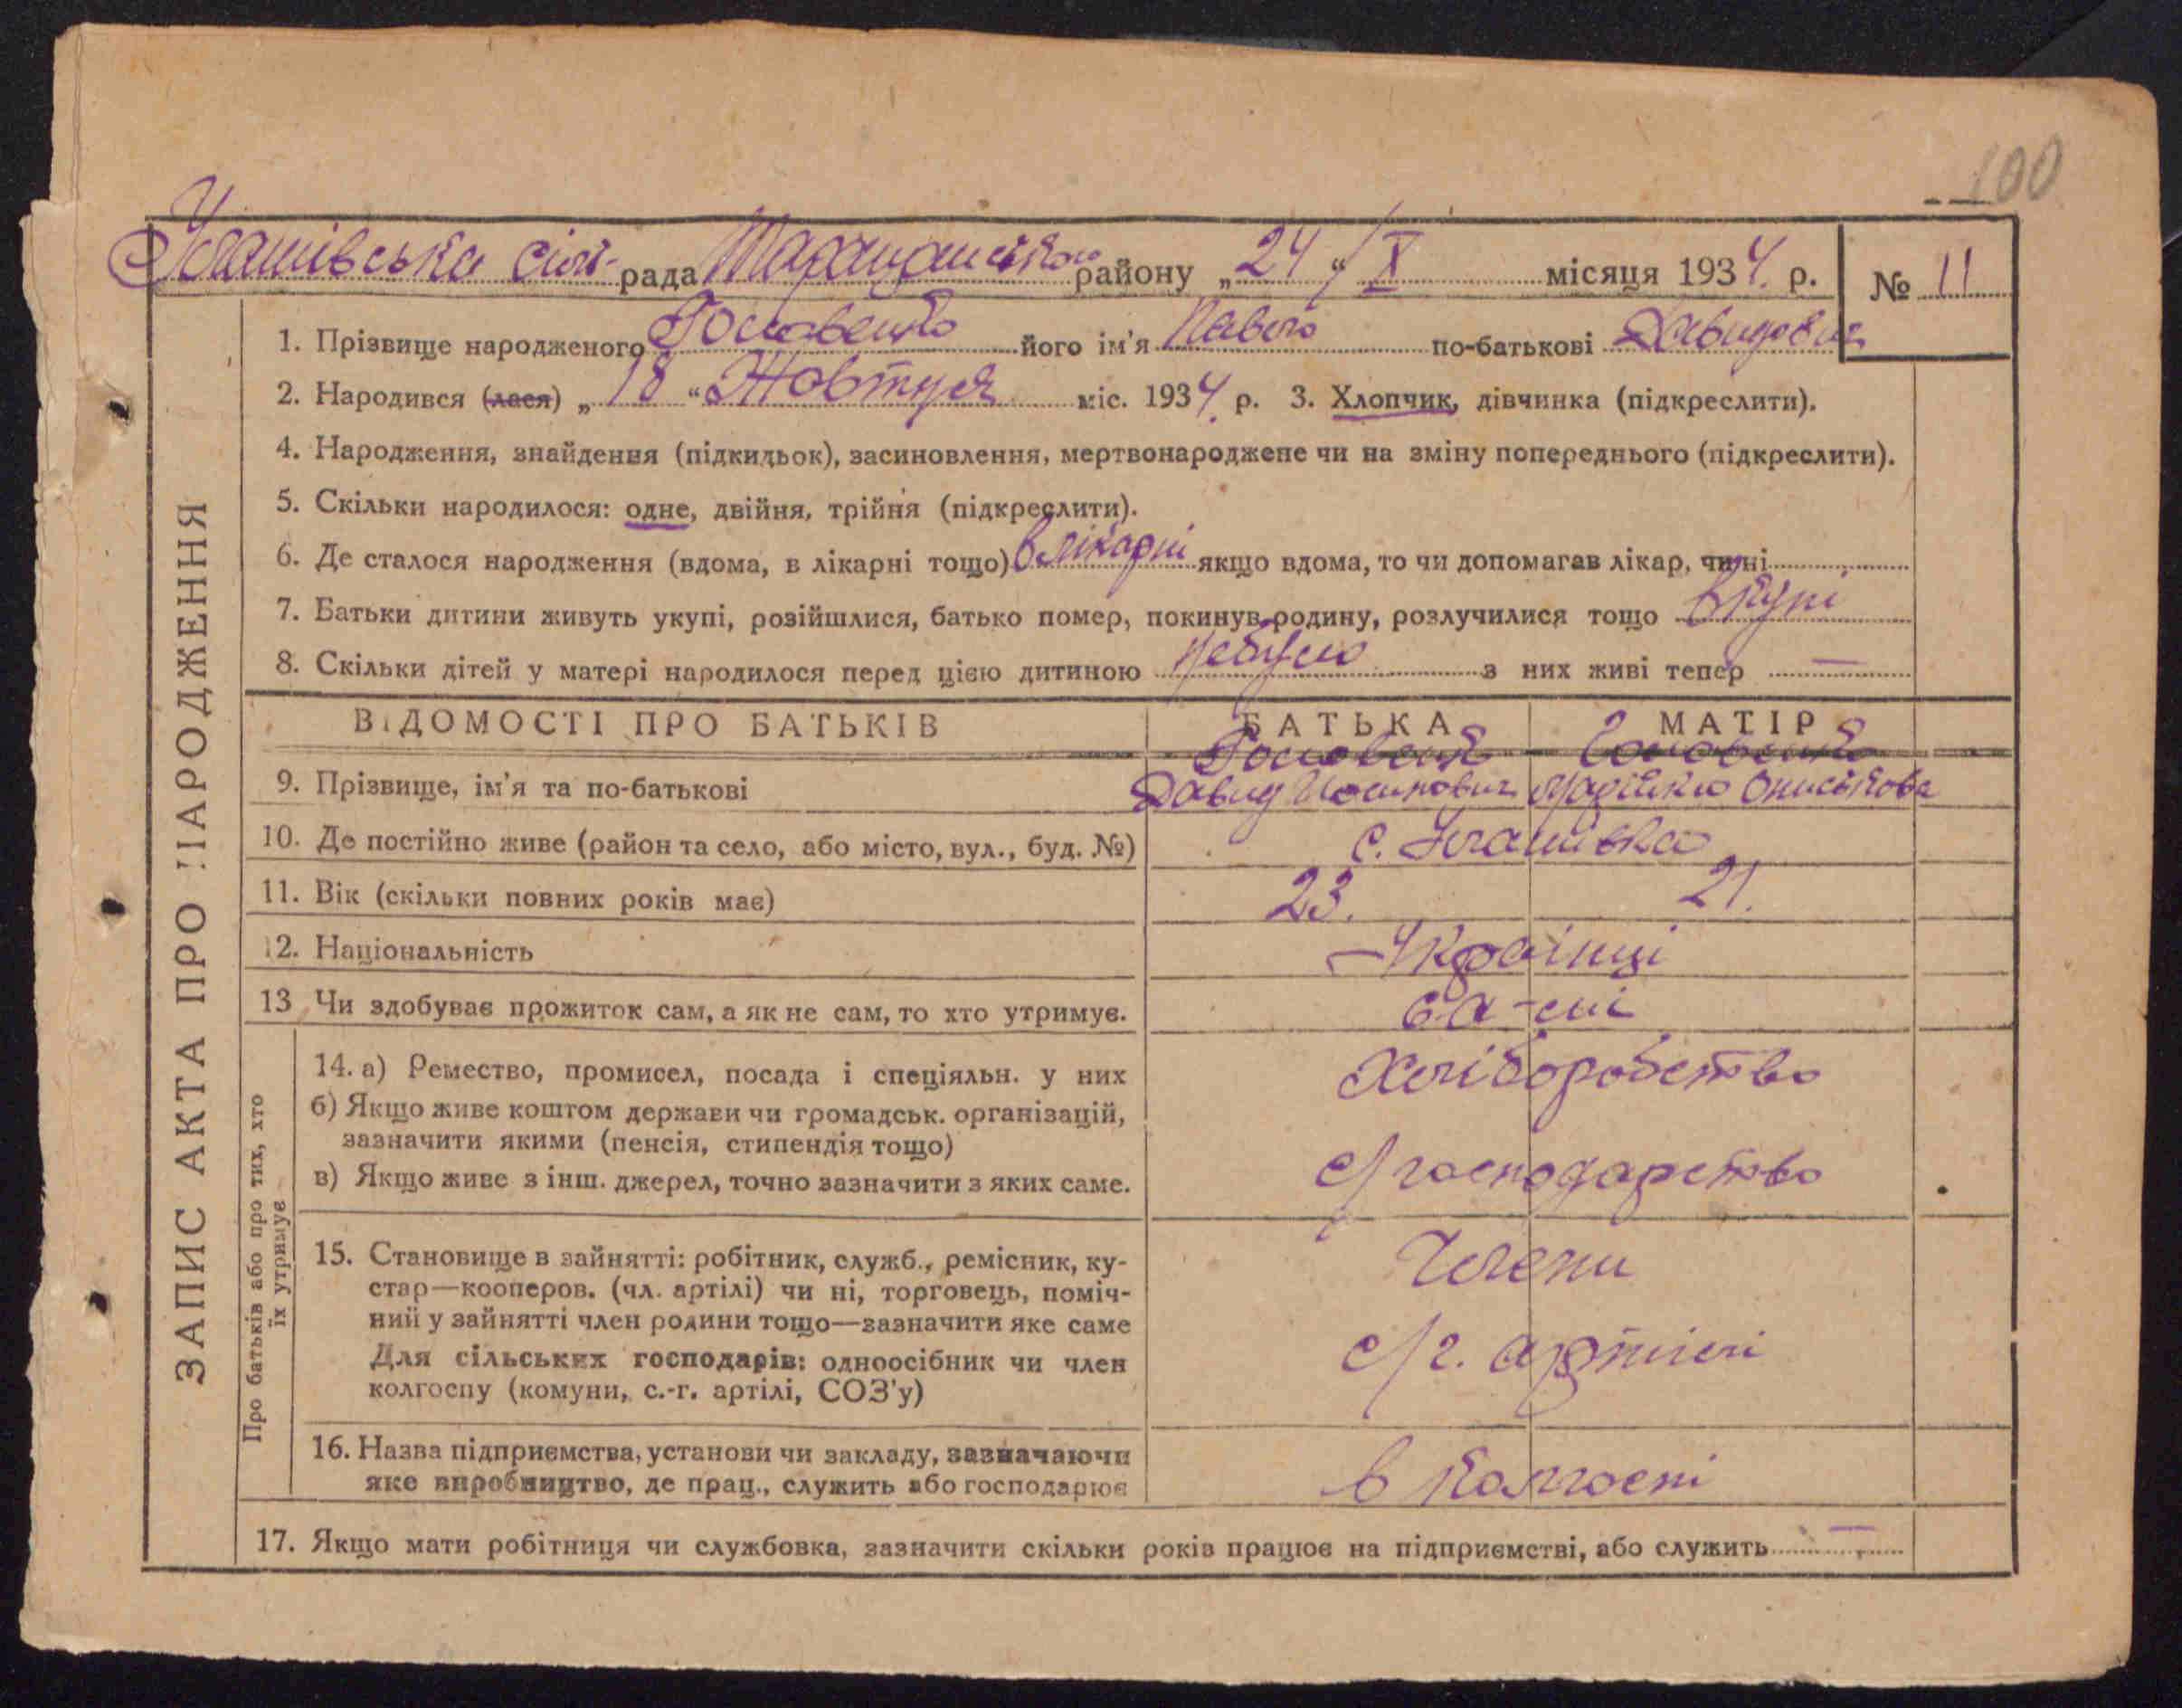 100
Улашівська сіль- рада Таращанського району „24/“ X місяця 1934. р. № 11
1. Прізвище народженого Головенко його ім'я Павло по-батькові Давидович
2. Народився (лася) „18“ Жовтня міс. 1934. р. 3. Хлопчик, дівчинка (підкреслити).
4. Народження, знайдення (підкидьок), засиновлення, мертвонароджене чи на зміну попереднього (підкреслити).
5. Скільки народилося: одне, двійня, трійня (підкреслити).
6. Де сталося народження (вдома, в лікарні тощо) в лікарні якщо вдома, то чи допомагав лікар, чи ні
7. Батьки дитини живуть укупі, розійшлися, батько помер, покинув родину, розлучилися тощо вкупі
8. Скільки дітей у матері народилося перед цією дитиною небуло з них живі тепер —
ВІДОМОСТІ ПРО БАТЬКІВ БАТЬКА МАТІР
Головенко Головенко
9. Прізвище, ім'я та по-батькові Давид Иосипович Ониськова
10. Де постійно живе (район та село, або місто, вул., буд. №) с. Улашівка
11. Вік (скільки повних років має) 23. 21.
12. Національність — Українці
13 Чи здобуває прожиток сам, а як не сам, то хто утримує. са-мі
14. а) Ремество, промисел, посада і спеціяльн. у них Хліборобство
б) Якщо живе коштом держави чи громадськ. організацій,
зазначити якими (пенсія, стипендія тощо)
в) Якщо живе з інш. джерел, точно зазначити з яких саме. с/господарство
15. Становище в зайнятті: робітник, служб., ремісник, ку-
стар—кооперов. (чл. артілі) чи ні, торговець, поміч- Члени
ний у зайнятті член родини тощо—зазначити яке саме
Для сільських господарів: одноосібник чи член с/г. артілі
колгоспу (комуни, с.-г. артілі, СОЗ'у)
16. Назва підприємства, установи чи закладу, зазначаючи
яке виробництво, де прац., служить або господарює в колгоспі
17. Якщо мати робітниця чи службовка, зазначити скільки років працює на підприємстві, або служить —
ЗАПИС АКТА ПРО НАРОДЖЕННЯ
Про батьків або про тих, хто
їх утримує